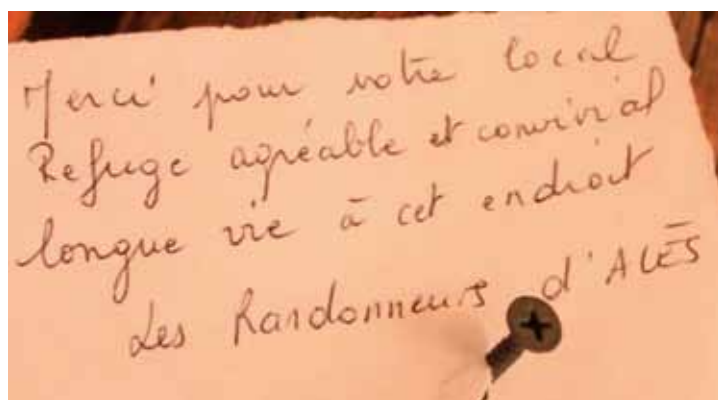 Merci pour votre local
Refuge agréable et convivial
longue vie à cet endroit
Les Randonneurs d'ALÈS